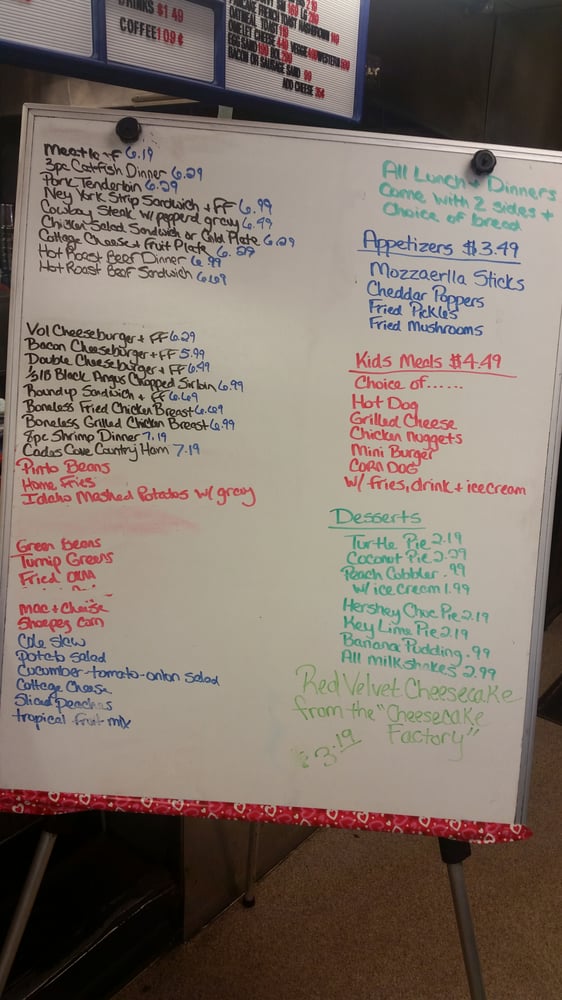 DRINKS $1 49
COFFEE 1 09¢
FRENCH TOAST
OATMEAL TOAST
OMELET CHEESE VEGGIE WESTERN
EGG SAND
BACON OR SAUSAGE SAND
ADD CHEESE 35¢
6.19
3pc Catfish Dinner 6.29
Pork Tenderloin 6.29
New York Strip Sandwich + FF 6.99
Cowboy Steak w/ pepperd gravy 6.49
Chicken Salad Sandwich or Cold Plate 6.29
Cottage Cheese + Fruit Plate 6.29
Hot Roast Beef Dinner 6.99
Hot Roast Beef Sandwich 6.69
Vol Cheeseburger + FF 6.29
Bacon Cheeseburger + FF 5.99
Double Cheeseburger + FF 6.49
1/2 lb Black Angus Chopped Sirloin 6.99
Roundup Sandwich + FF 6.69
Boneless Fried Chicken Breast 6.69
Boneless Grilled Chicken Breast 6.99
8pc Shrimp Dinner 7.19
Cades Cove Country Ham 7.19
Pinto Beans
Home Fries
Idaho Mashed Potatoes w/ gravy
Green Beans
Turnip Greens
Fried Okra
Mac + Cheese
Shoepeg Corn
Cole Slaw
Potato Salad
Cucumber-tomato-onion Salad
Cottage Cheese
Sliced Peaches
tropical fruit mix
All Lunch + Dinners
Come with 2 sides +
Choice of bread
Appetizers $3.49
Mozzaerlla Sticks
Cheddar Poppers
Fried Pickles
Fried Mushrooms
Kids Meals $4.49
Choice of......
Hot Dog
Grilled Cheese
Chicken Nuggets
Mini Burger
CORN DOG
w/ fries, drink + ice cream
Desserts
Turtle Pie 2.19
Coconut Pie 2.29
Peach Cobbler .99
w/ ice cream 1.99
Hershey Choc Pie 2.19
Key Lime Pie 2.19
Banana Pudding .99
All milkshakes 2.99
Red Velvet Cheesecake
from the "Cheesecake
Factory"
$3.19